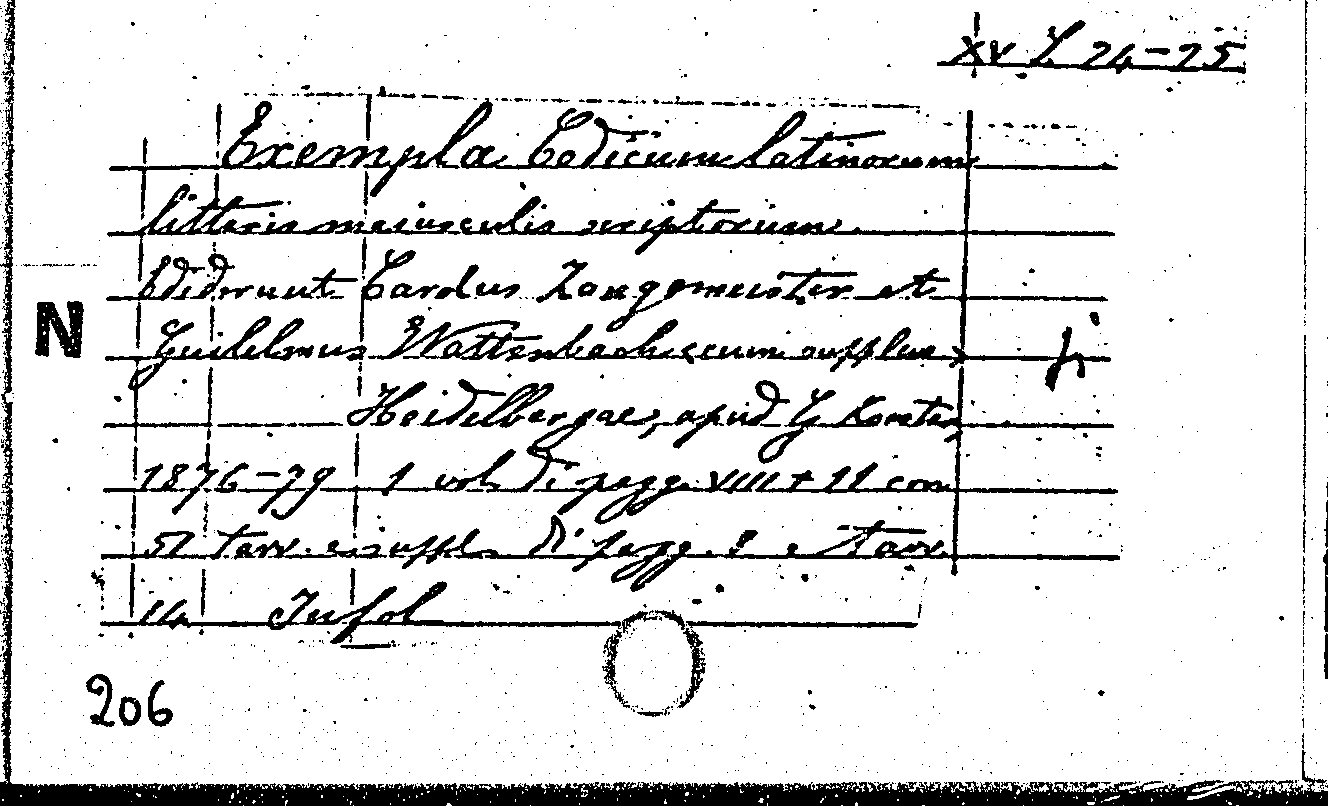 XV L 24-25
Exempla Codicum latinorum
litteris maiusculis scriptorum.
Ediderunt Carolus Zangemeister et
N
Guilelmus Wattenbach (cum supplem)
Heidelbergae, apud G Koester,
1876-79 1 vol di pagg. VIII + 11 con
51 tavv. e suppl di pagg. 8 e tavv
14 In fol
206